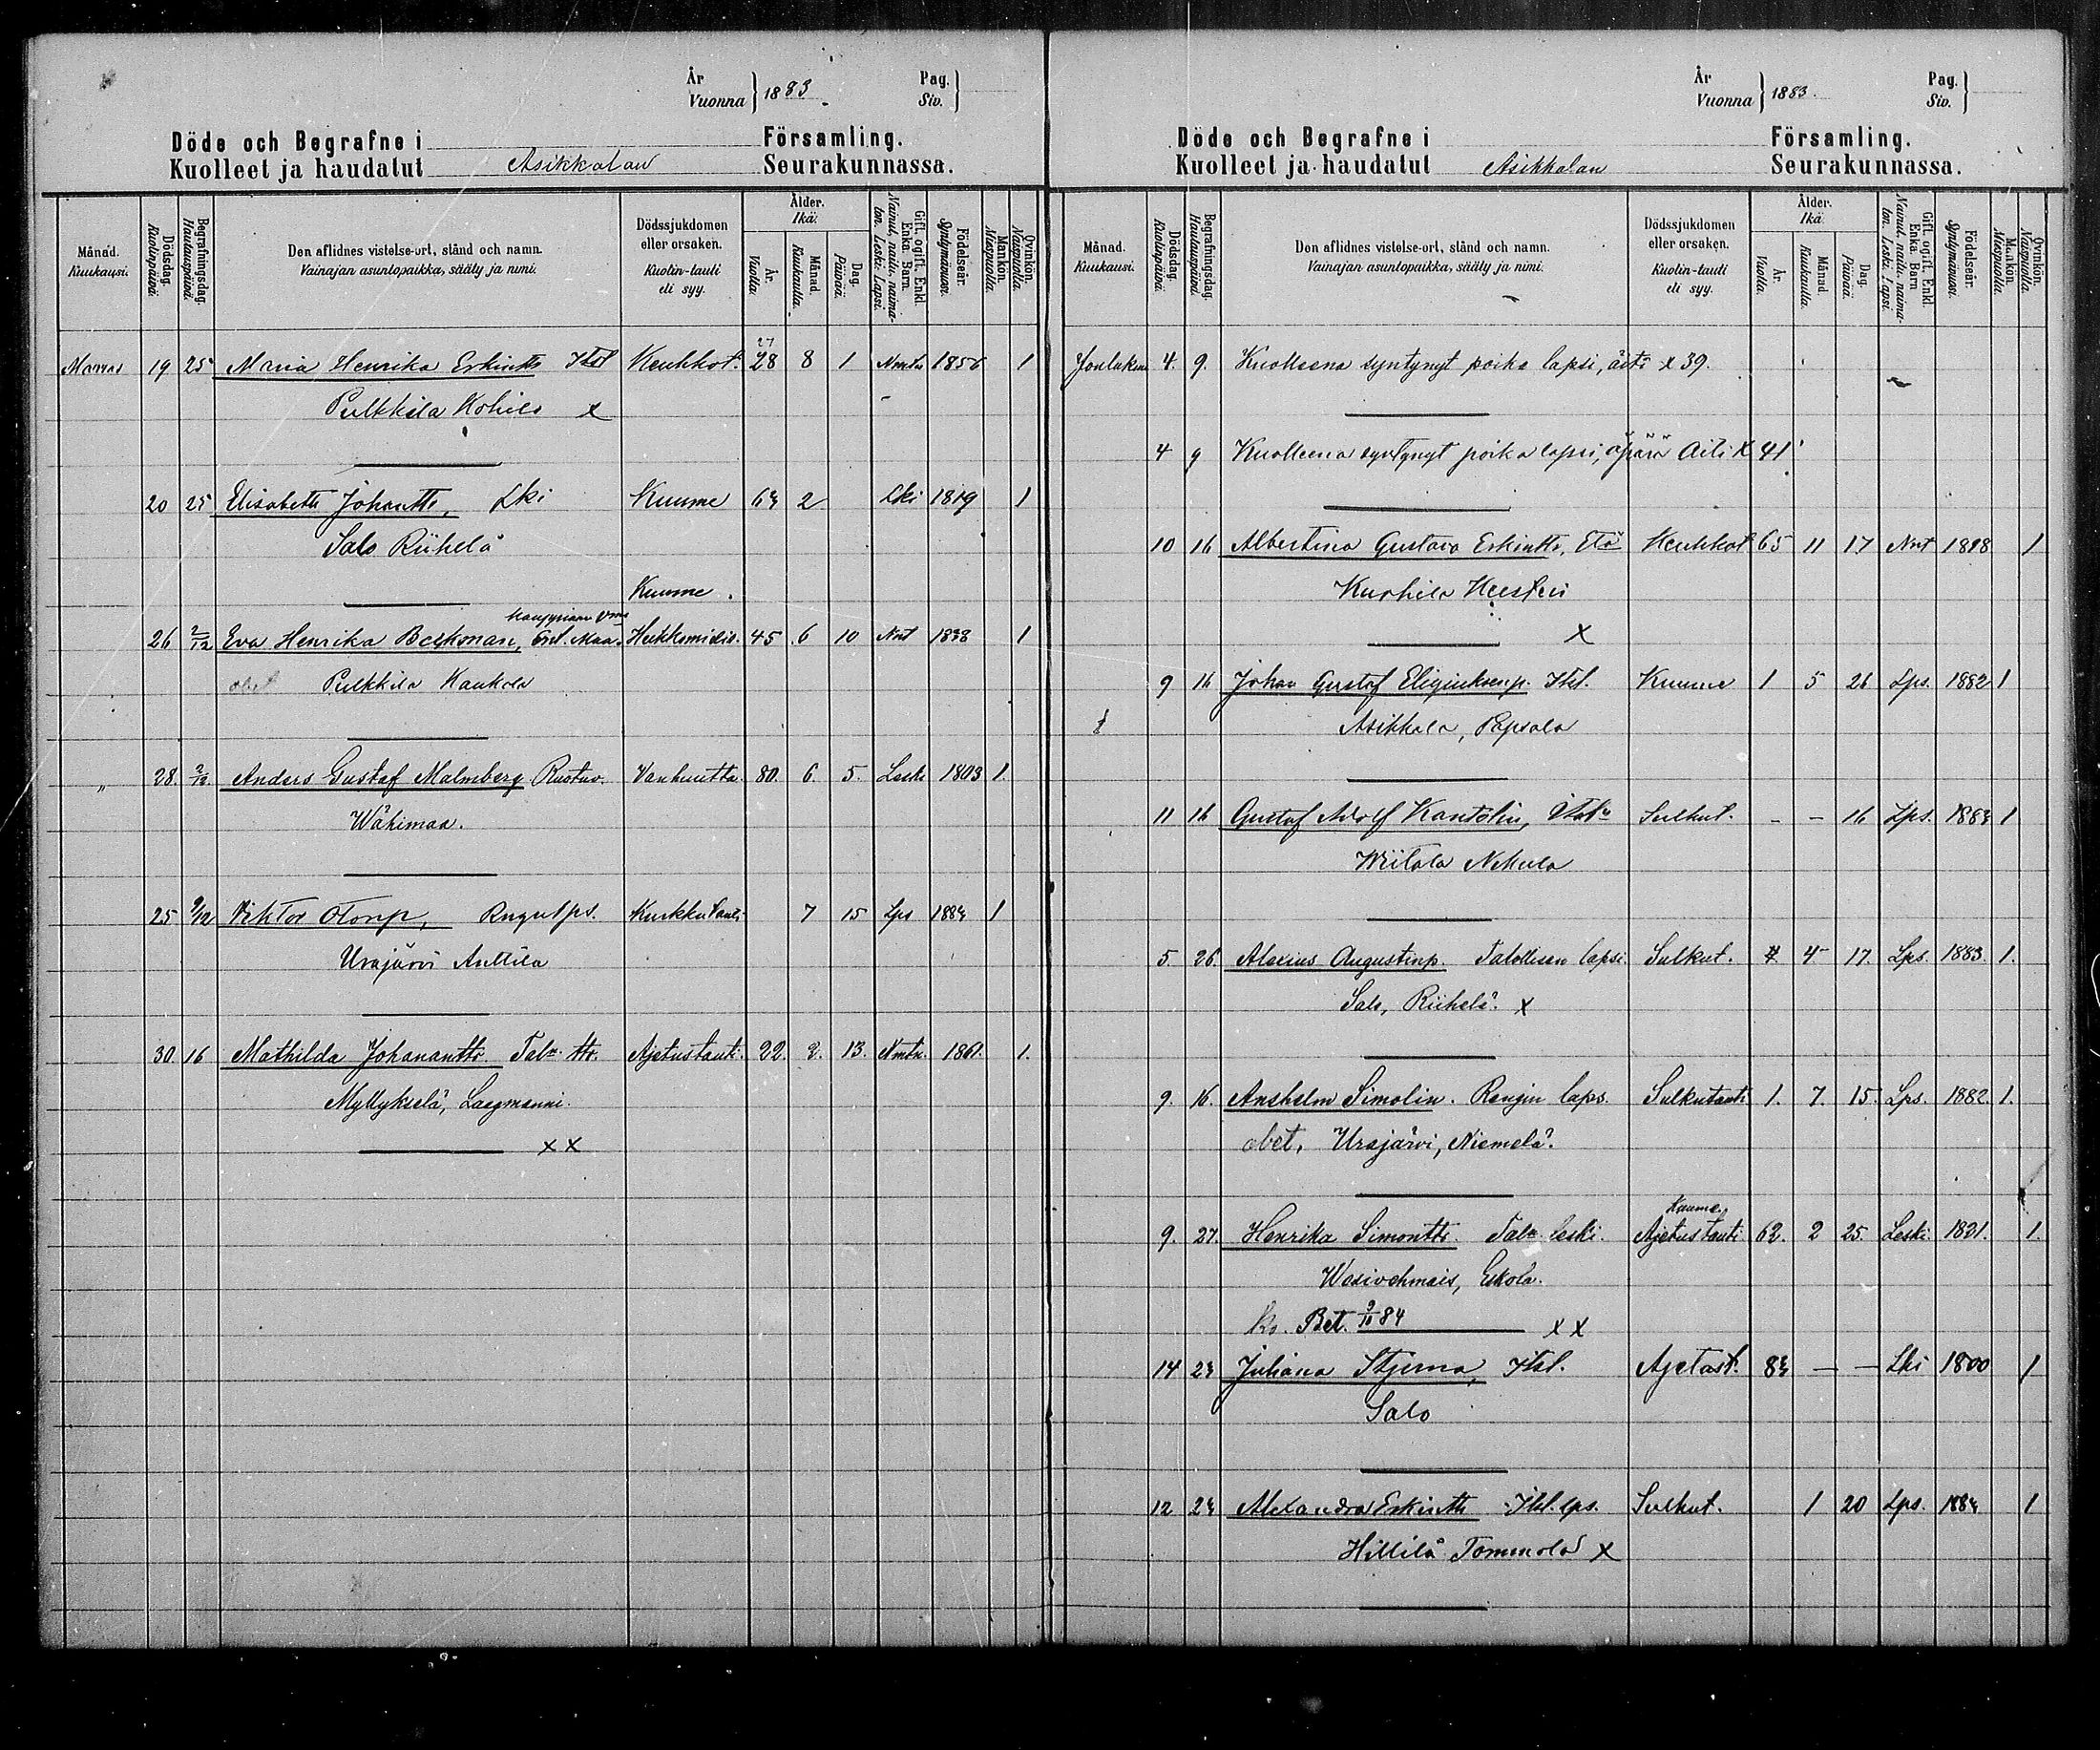 År
Vuonna } 1883.
Pag.
Siv. }
Döde och Begrafne i Församling.
Kuolleet ja haudatut Asikkalan Seurakunnassa.
Månad. Kuukausi.
Dödsdag. Kuolinpäivä.
Begrafningsdag. Hautauspäivä.
Den aflidnes vistelse-ort, stånd och namn.
Vainajan asuntopaikka, sääty ja nimi.
Dödssjukdomen eller orsaken.
Kuolin-tauti eli syy.
Ålder. Ikä.
År. Vuotta.
Månad. Kuukautta.
Dag. Päivää.
Gift, ogift, Enkl. Enka. Barn.
Nainut, naitu, naimaton. Leski. Lapsi.
Födelseår. Syntymävuosi.
Mankön. Miespuolia.
Qvinkön. Naispuolia.
27
Marras 19 25 Maria Henrika Erkintr Itsl Keuhkot. 28 8 1 Nmtn 1856 1
Pulkkila Kohila x
20 25 Elisabeth Johantr, Lki Kuume 64 2 Lki 1819 1
Salo Riihelä
Kuume.
26 2/12 Eva Henrika Beckman, Maa. 45 6 10 Nnt 1838 1
obet Pulkkila Kaukola
" 28. 2/12 Anders Gustaf Malmberg Ruotuv. Vanhuutta. 80. 6. 5. Leski 1803 1.
Wähimaa.
25 9/12 Viktor Ottonp, Kurkkutauti 7 15 Lps 1883 1
Urajärvi Anttila
30. 16 Mathilda Johanantr. Tal:n ttr. Ajetustauti. 22. 2. 13. Nmtn. 1861. 1.
Myllykselä, Laagmanni.
x x
År
Vuonna } 1883.
Pag.
Siv. }
Döde och Begrafne i Församling.
Kuolleet ja haudatut Asikkalan Seurakunnassa.
Månad. Kuukausi.
Dödsdag. Kuolinpäivä.
Begrafningsdag. Hautauspäivä.
Den aflidnes vistelse-ort, stånd och namn.
Vainajan asuntopaikka, sääty ja nimi.
Dödssjukdomen eller orsaken.
Kuolin-tauti eli syy.
Ålder. Ikä.
År. Vuotta.
Månad. Kuukautta.
Dag. Päivää.
Gift, ogift, Enkl. Enka. Barn
Nainut, naitu, naimaton. Leski. Lapsi.
Födelseår. Syntymävuosi.
Mankön. Miespuolia.
Qvinkön. Naispuolia.
Joulukuu 4. 9. Kuolleena syntynyt poika lapsi, äiti x 39.
4 9 Kuolleena syntynyt poika lapsi, äpärä Äiti x 41
10 16 Albertina Gustava Erkintr, Keuhkot 65 11 17 Nnt 1818 1
Kurhila Heistari
x
9 16 Johan Gustaf Eligiuksenp. Itsl. Kuume 1 5 26 Lps. 1882 1
Asikkala, Papsala
11 16 Gustaf Adolf Kantolin, Sulkut. - - 16 Lps. 1883 1
Wiitala Nikula
5. 26. Alexius Augustinp. Talollisen lapsi. Sulkut. 4 17. Lps. 1883. 1.
Salo, Riihelä. x
9. 16. Anshelm Simolin. Rengin laps. Sulkutauti 1. 7. 15. Lps. 1882. 1.
obet, Urajärvi, Niemelä.
Kuume
9. 27. Henrika Simontr. Tal:n leski. Ajetustauti 62. 2 25. Leski. 1821. 1.
Wesivehmais, Eskola.
ks. Bet. 9/10 84 x x
14 23 Juliana Stjerna, Itsl. Ajetast. 83 — — Lki 1800 1
Salo
12 23 Alexandra Erkintr Itsl. lps. Sulkut. 1 20 Lps. 1883 1
Hillilä Tommola x